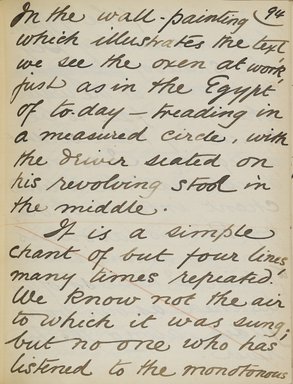 94
In the wall-painting
which illustrates the text,
we see the oxen at work
just as in the Egypt
of to-day — treading in
a measured circle, with
the driver seated on
his revolving stool in
the middle.
It is a simple
chant of but four lines,
many times repeated.
We know not the air
to which it was sung;
but no one who has
listened to the monotonous